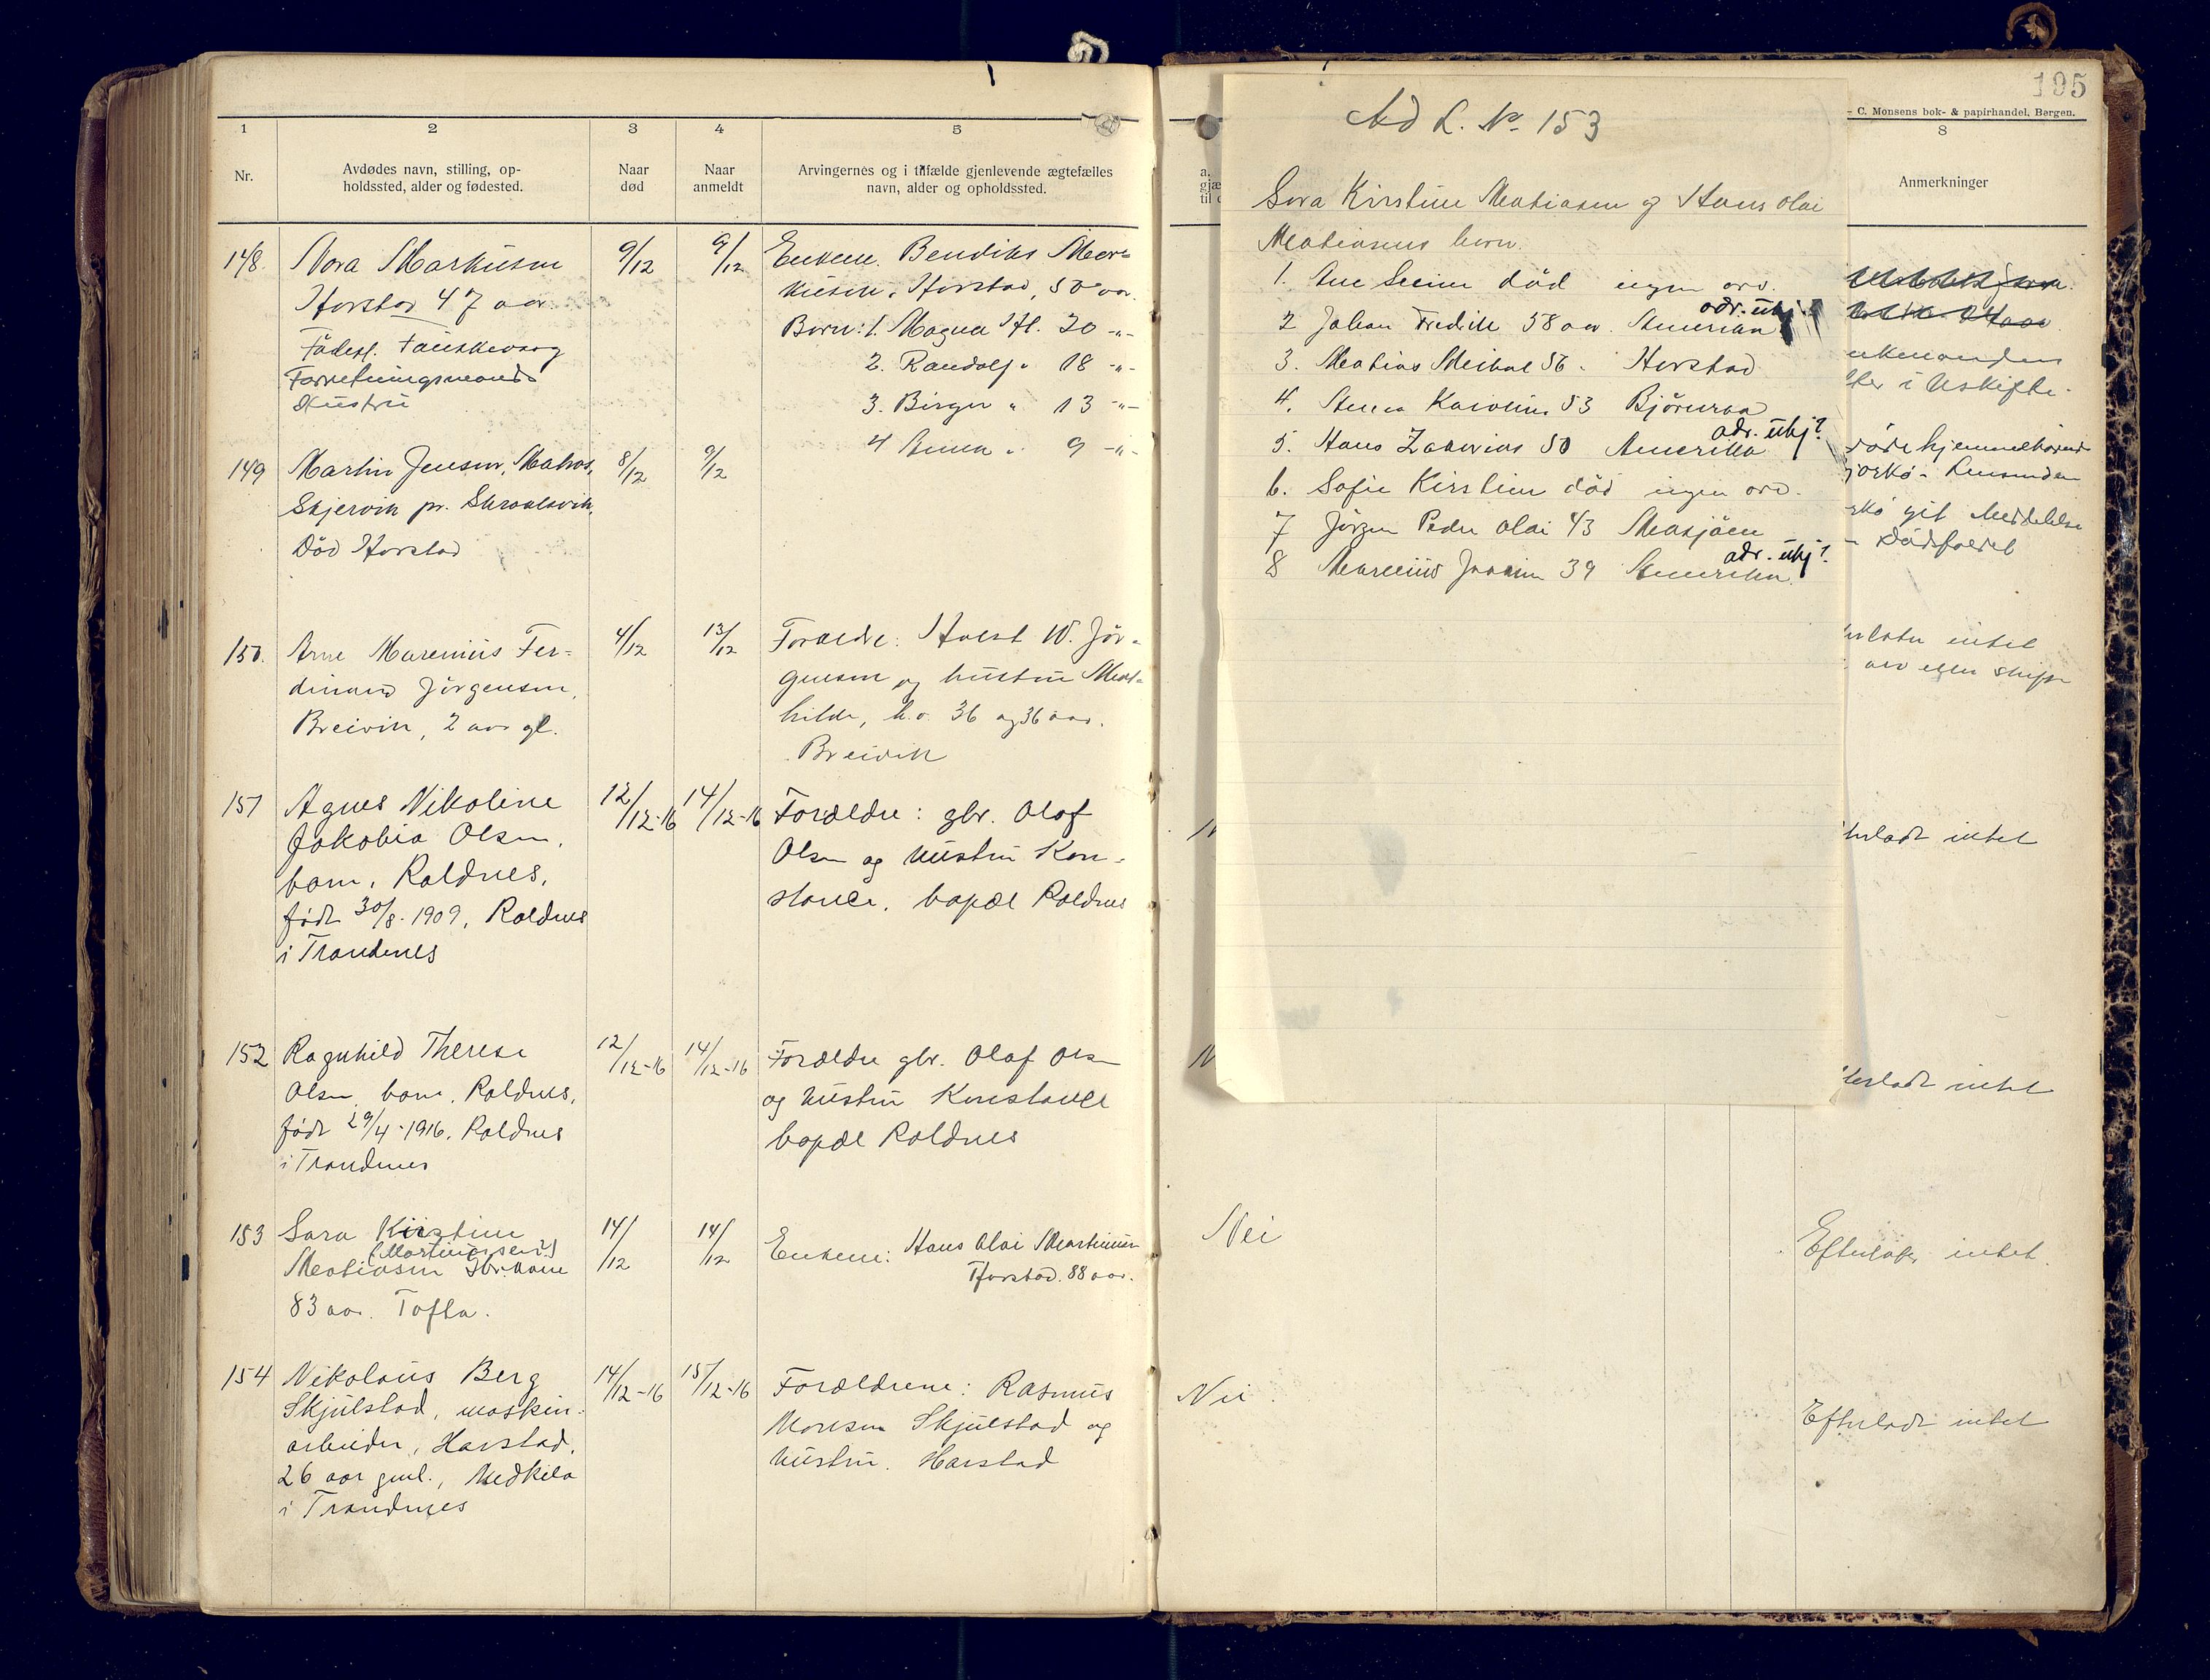 1
2
3
4
5
Nr.
Avdødes navn, stilling, op-
holdssted, alder og fødested.
Naar
død
Naar
anmeldt
Arvingernes og i tilfælde gjenlevende ægtefælles
navn, alder og opholdssted.
148. Nora Markusen 9/12 9/12
Harstad 47 aar
Fødest.
Forretningsmands
Hustru
Enkem. Bendiks Mar-
kusen, Harstad, 50 aar.
Børn: 1. Magna Hd. 20 -"-
2. Randolf " 18 -"-
3. Birger " 13 -"-
4 Anna " 9 -"-
149 Martin Jensen, Matros, 8/12 9/12
Skjervik pr.
Død Harstad
150. Arne Marenius Fer-
dinand Jörgensen,
Breivik, 2 aar gl.
4/12 13/12
Forældre: W. Jör-
gensen og hustru Mat-
hilde, h.o. 36 og 36 aar.
Breivik
151 Agnes Nikoline
Jakobia Olsen,
barn, Roldnes,
født 30/8-1909, Roldnes
i Trondenes
12/12-16 14/12-16
Forældre: gbr. Olaf
Olsen og hustru Kon-
stance, bopæl Roldnes
152 Ragnhild Therese
Olsen, barn, Roldnes,
født 29/4-1916, Roldnes
i Trondenes
12/12-16 14/12-16
Forældre gbr. Olaf Olsen
og hustru Konstance
bopæl Roldnes
153 Sara Kirstine
(Martinussen?)
Matiasen
83 aar. Tofta.
14/12 14/12
Enkem: Hans Olai Martinusen
Harstad. 88 aar.
154 Nikolaus Berg
Skjulstad, maskin-
arbeider, Harstad,
26 aar gml., Medkila
i Trondenes
14/12-16 15/12-16
Forældrene: Rasmus
Skjulstad og
hustru. Harstad
195
C. Monsens bok- & papirhandel, Bergen.
8
Anmerkninger
Ad L. No 153
Sara Kirstine Matiasen og Hans Olai
Matiasens børn.
1. Ane død ingen arv.
2 Johan Fredrik 58 aar. Amerika adr. ubj.?
3. Matias Meibal 56 - Harstad
4. Karoline 53 Bjørnraa
5. Hans Zakarias 50 Amerika adr. ubj?
6. Sofie Kirstine død ingen arv.
7 Jörgen Peder Olai 43 Mosjøen
8 Marelius Joakim 39 Amerika. adr. ubj?
enkemanden
i uskifte.
git Meddelelse
Dødsfaldet
intet
arv eller skifte
intet
intet
Nei
Efterlater intet.
Nei
Efterladt intet